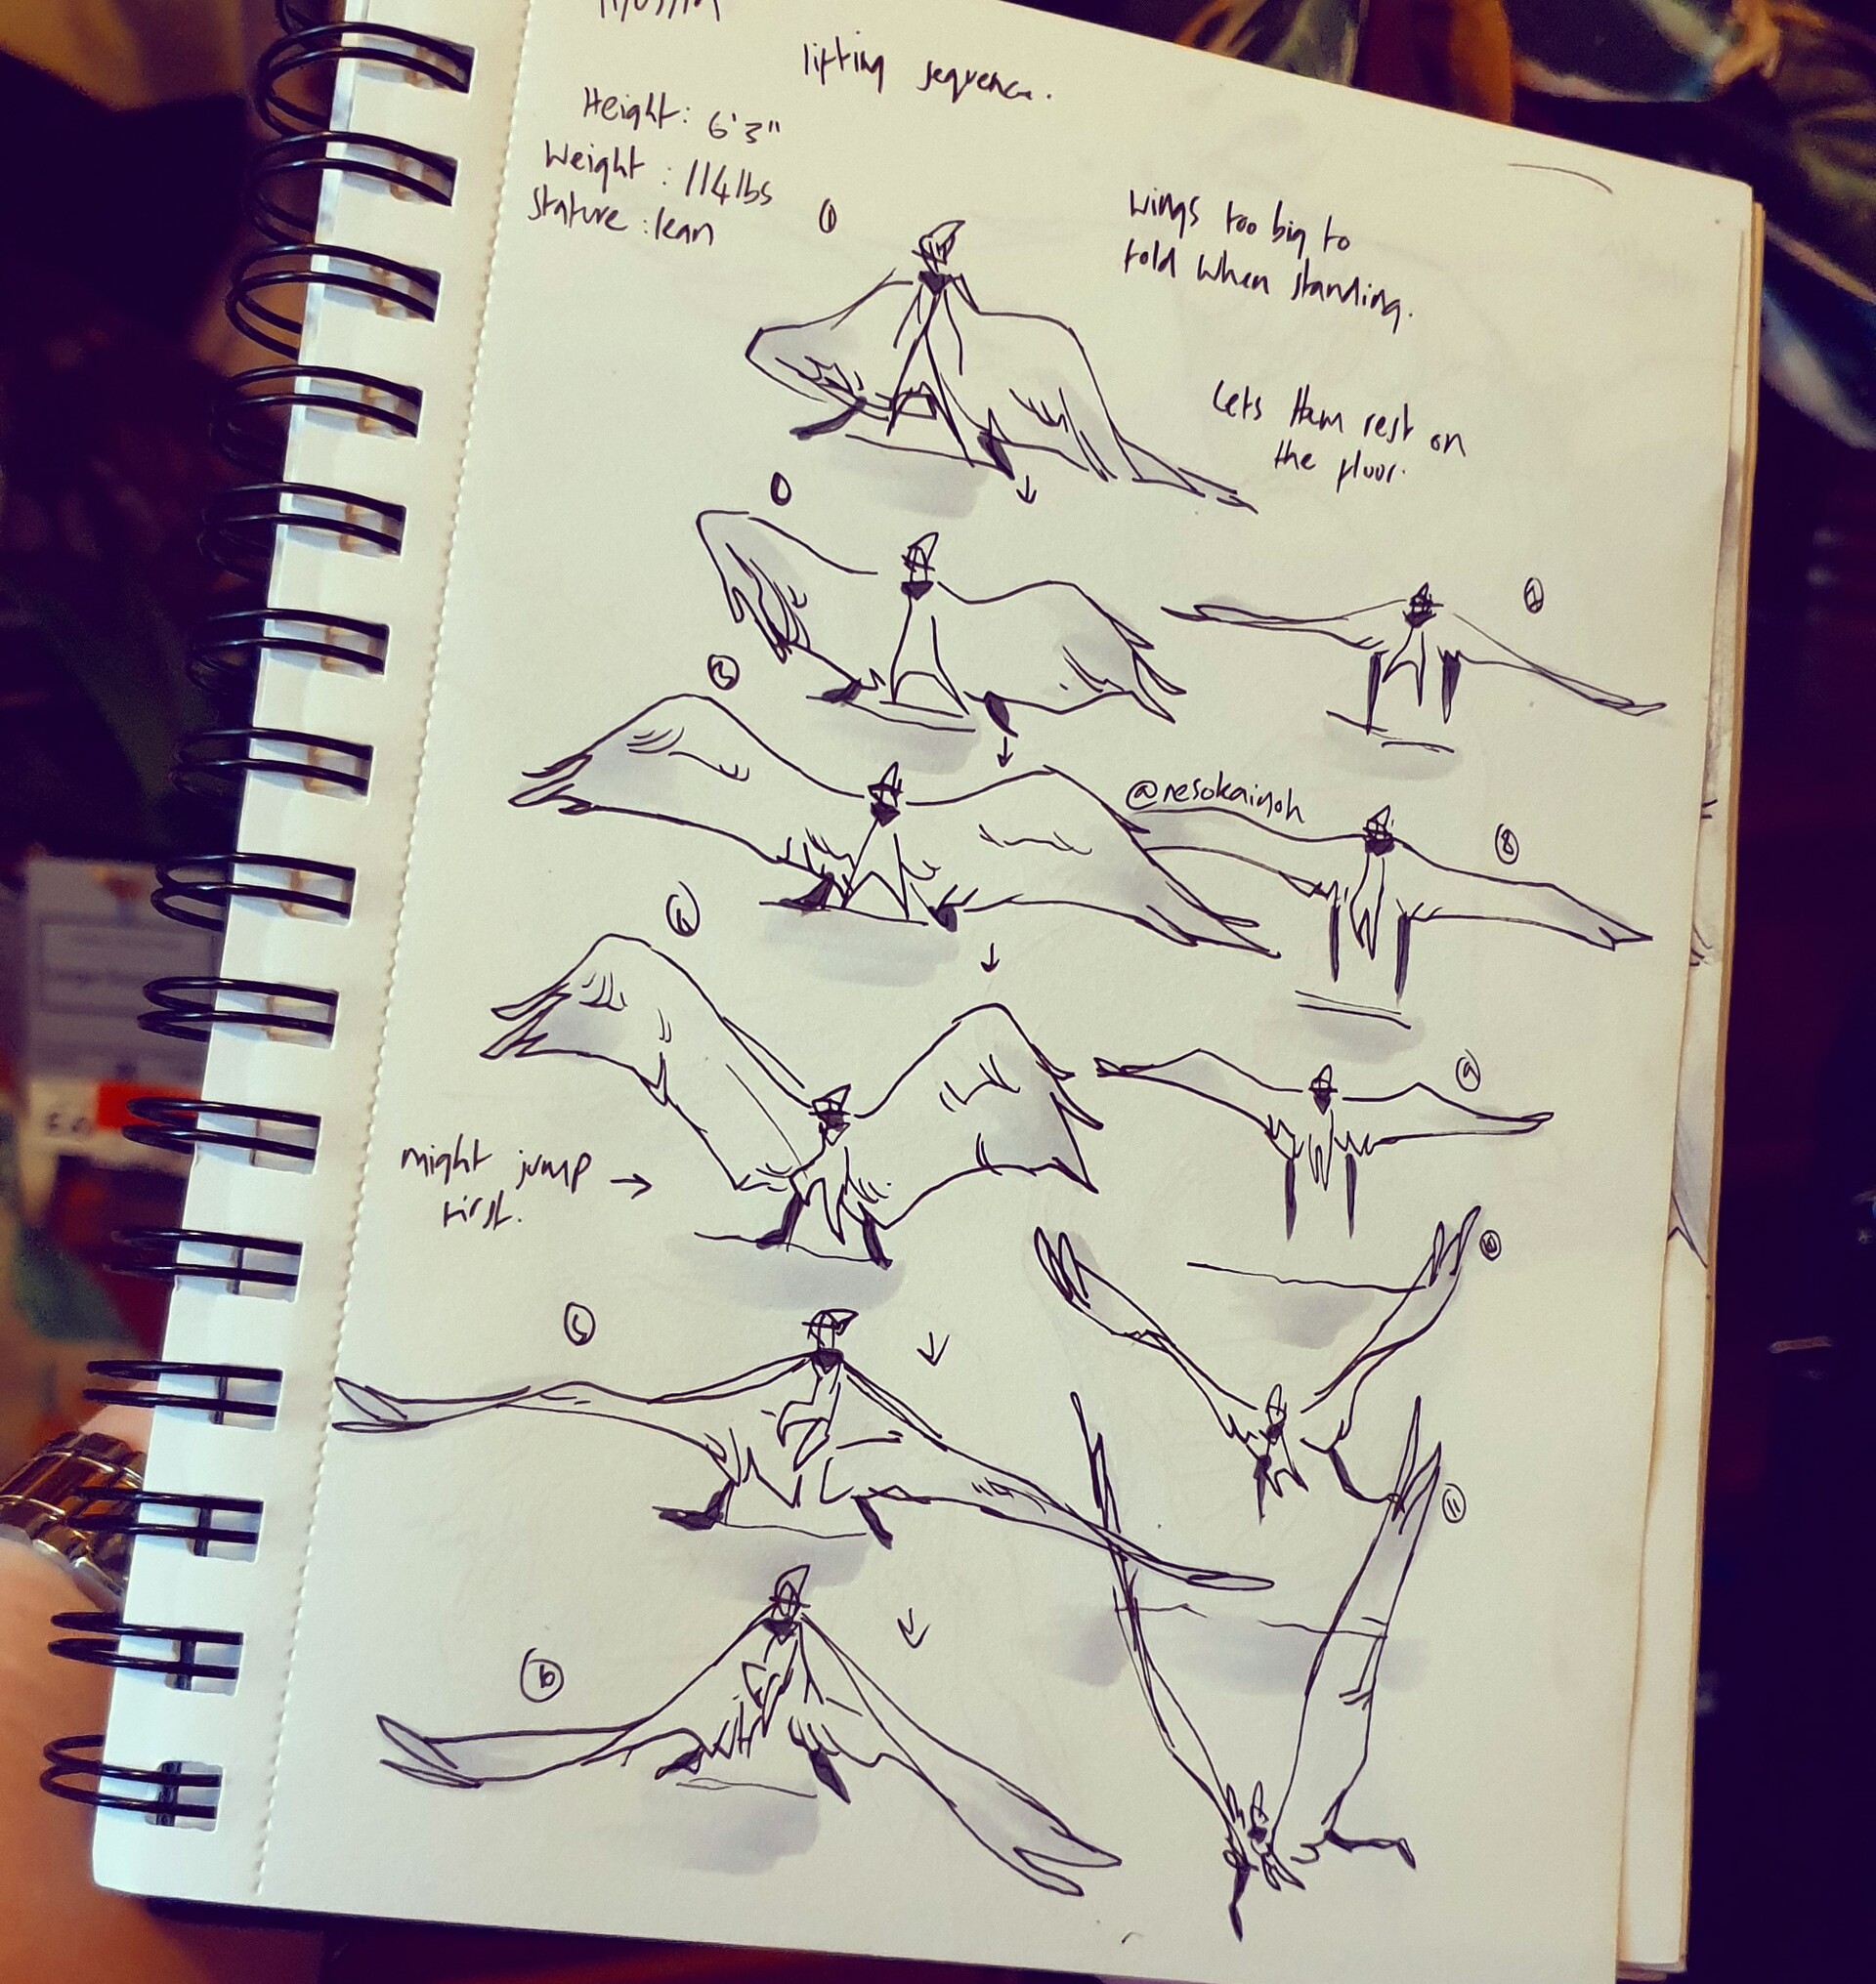 lifting sequence.
Height: 6'3"
Weight: 114lbs
Stature: lean
①
wings too big to
fold when standing.
Lets them rest on
the floor.
@nesokaiyoh
⑧
might jump
first.
⑨
⑩
⑥
⑪